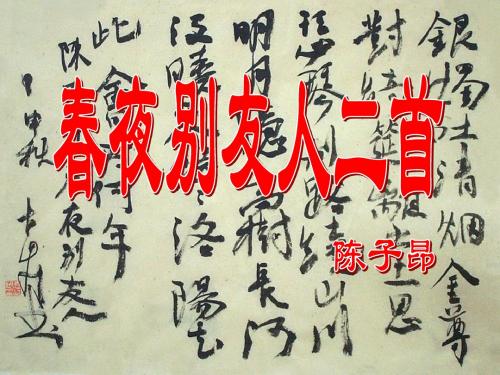 春夜别友人二首
陈子昂
銀燭吐清烟金尊
對綺筵離堂思
琴瑟別路繞山川
明月隱高樹長河
没曉洛陽去
此會何年
陳夜别友人
甲申秋